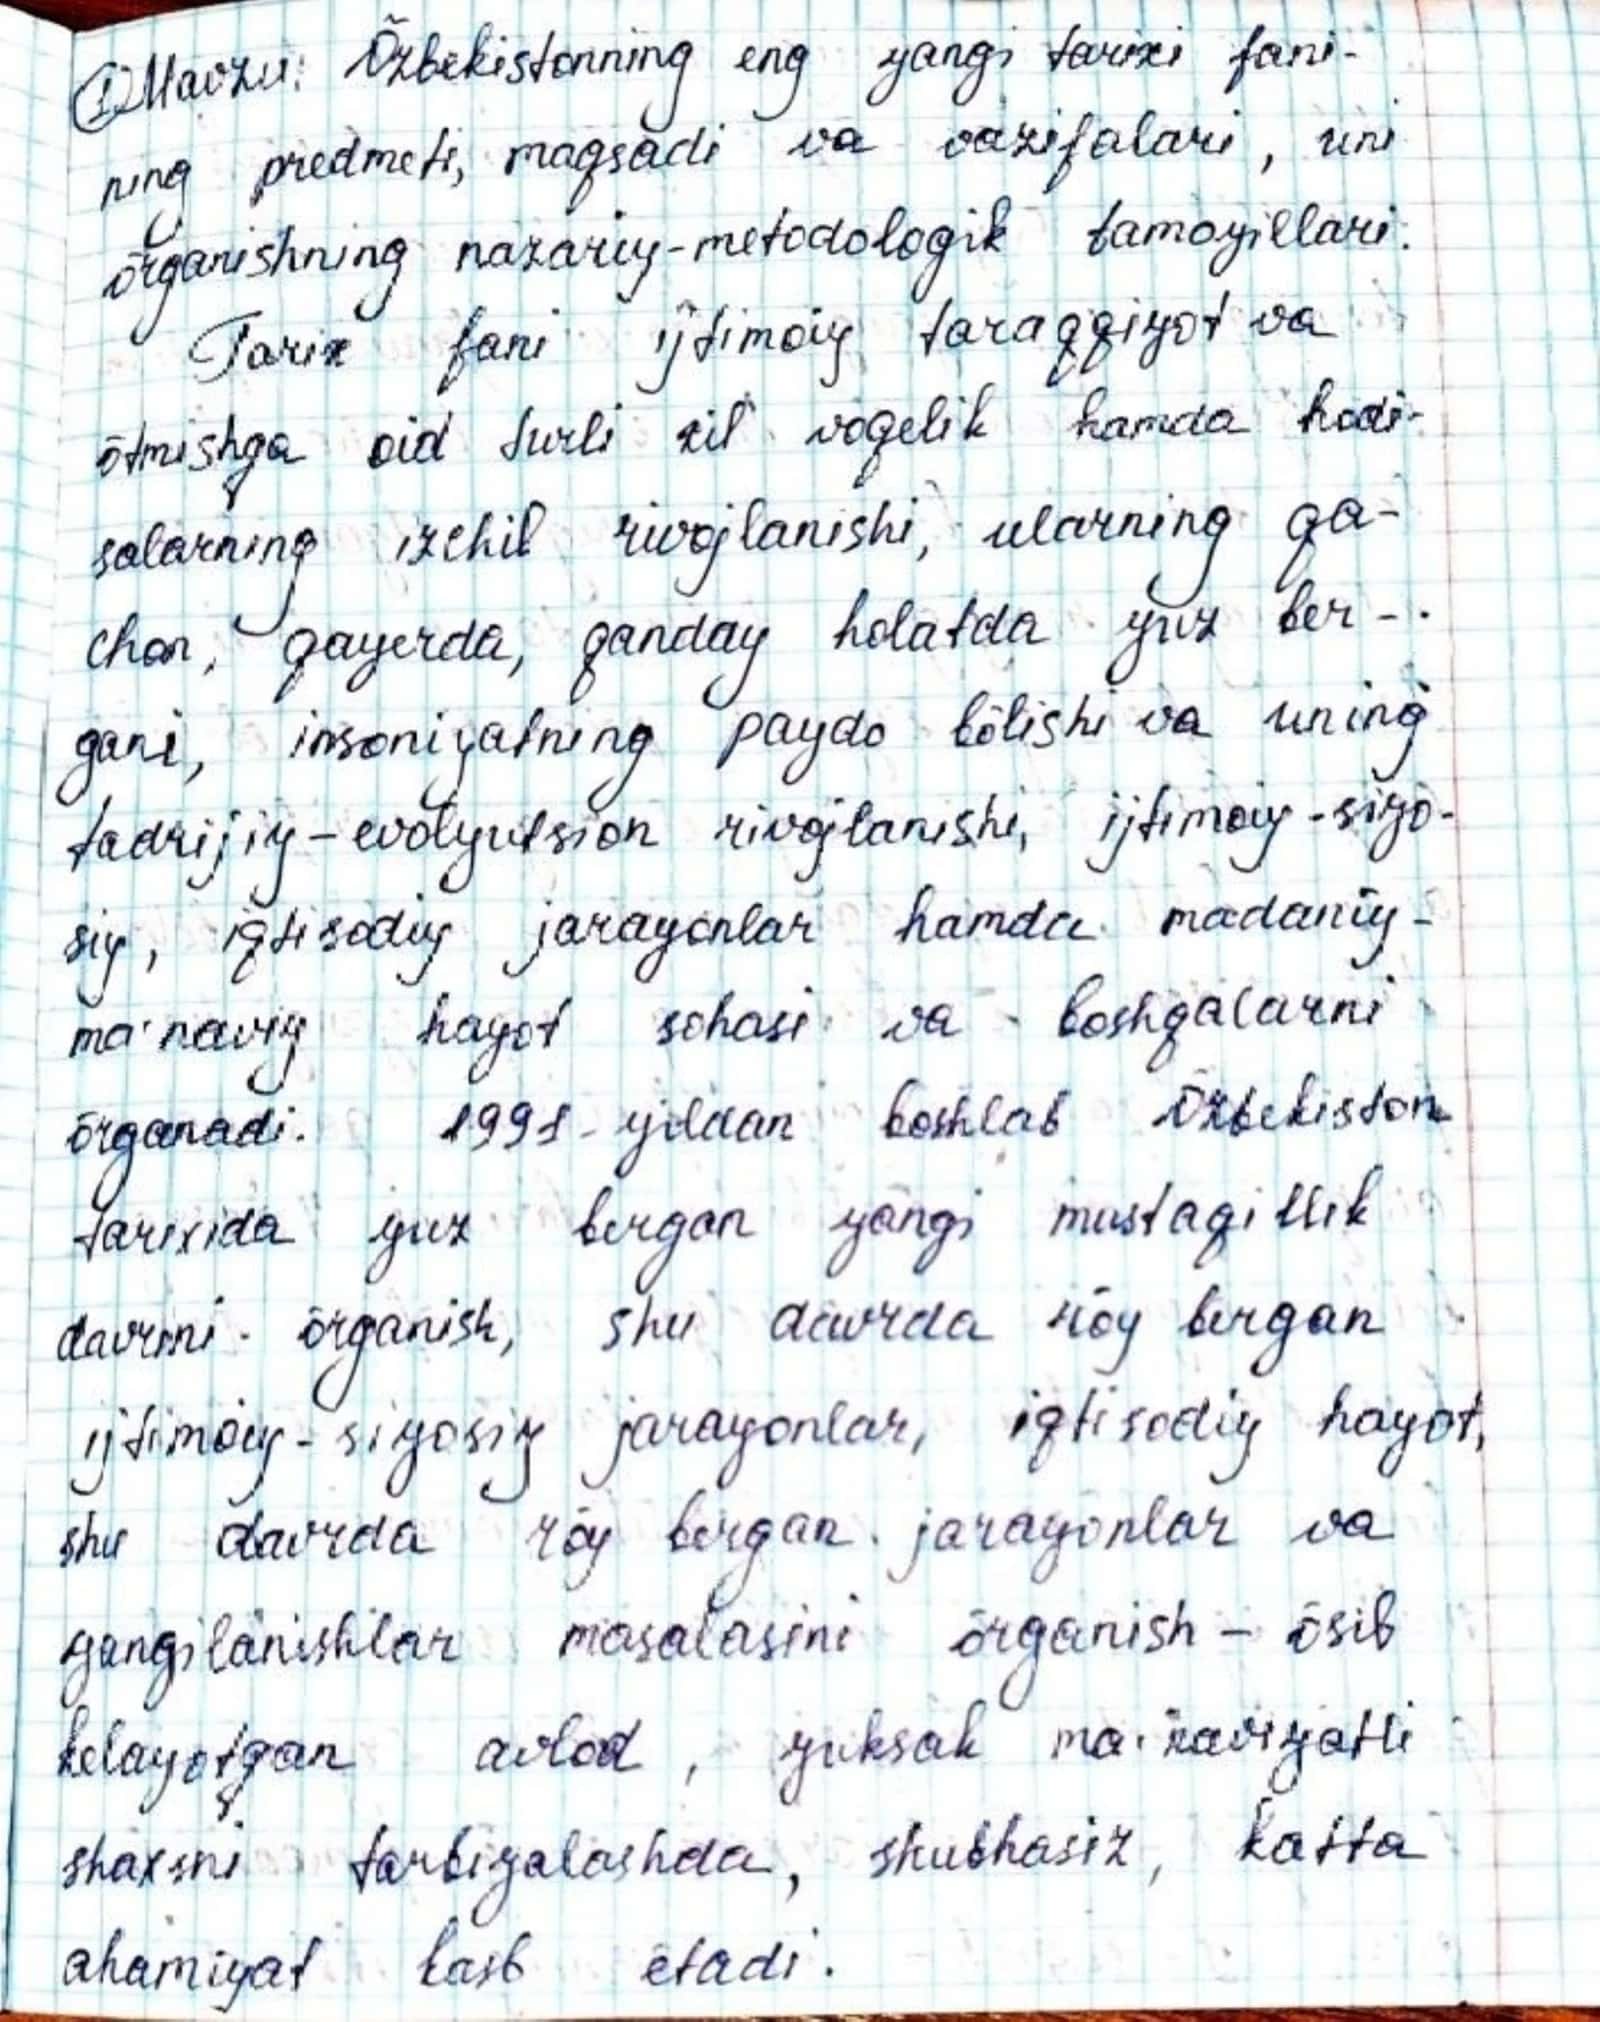 ① Mavzu: Õzbekistonning eng yangi tarixi fani-
ning predmeti, maqsadi va vazifalari, uni
õrganishning nazariy-metodologik tamoyillari.
Tarix fani ijtimoiy taraqqiyot va
õtmishga oid turli xil voqelik hamda hodi-
salarning izchil rivojlanishi, ularning qa-
chon, qayerda, qanday holatda yuz ber-
gani, insoniyatning paydo bõlishi va uning
tadrijiy-evolyutsion rivojlanishi, ijtimoiy-siyo-
siy, iqtisodiy jarayonlar hamda madaniy-
ma'naviy hayot sohasi va boshqalarni
õrganadi. 1991-yildan boshlab Õzbekiston
tarixida yuz bergan yangi mustaqillik
davrini õrganish, shu davrda rõy bergan
ijtimoiy-siyosiy jarayonlar, iqtisodiy hayot,
shu davrda rõy bergan jarayonlar va
yangilanishlar masalasini õrganish – õsib
kelayotgan avlod, yuksak ma'naviyatli
shaxsni tarbiyalashda, shubhasiz, katta
ahamiyat kasb etadi.